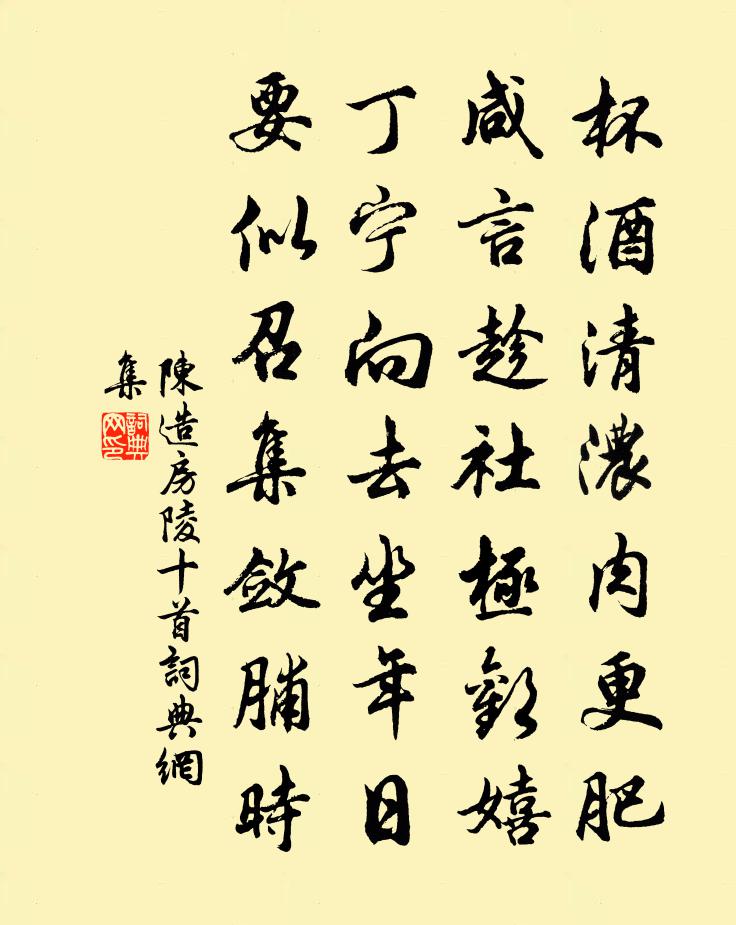 杯酒清濃肉更肥
咸言趁社極歡嬉
丁宁向去坐年日
要似召集斂脯時
陳造房陵十首詞典網
集
詞典
网印